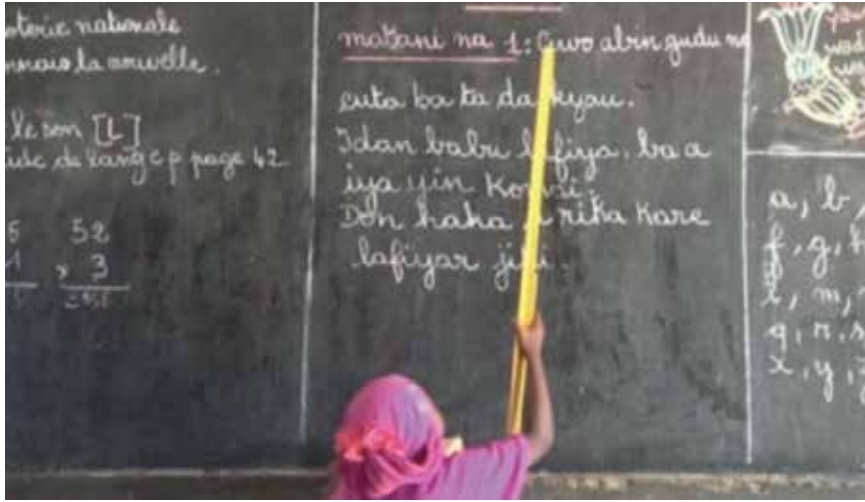 nationale
la nouvelle.
le son [l]
de langage p page 42
52
× 3
matani na 1: Ciwo abin gudu ne
cuta ba ta da kyau.
Idan babu lafiya, ba a
iya yin komi.
Don haka a rika kare
lafiyar jiki.
a, b,
f, g, h
l, m,
q, r, s
x, y, z